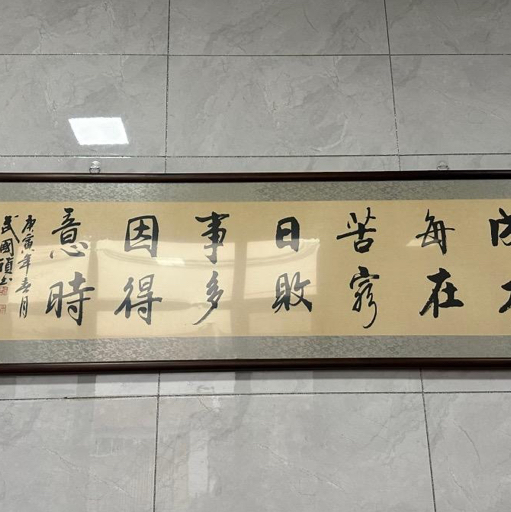 每在
苦窮
日敗
事多
因得
意時
庚寅年春月
武國